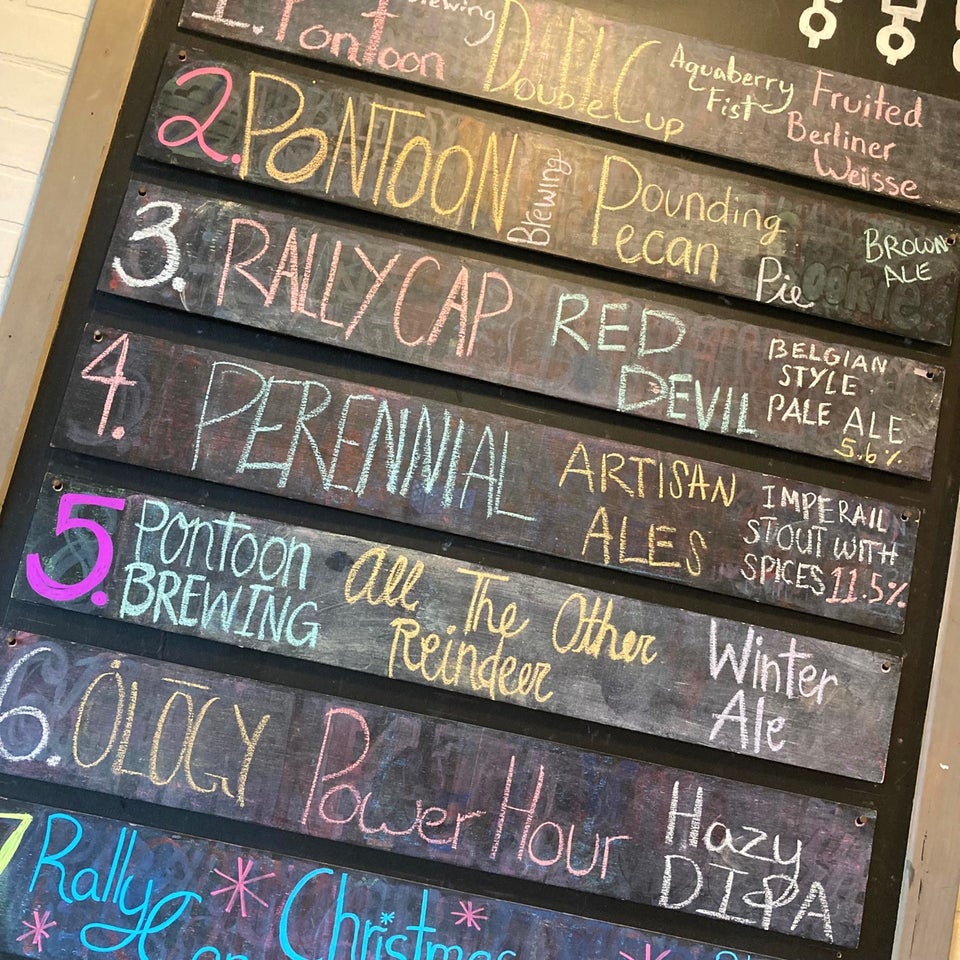 1. Pontoon Brewing Double Cup Aquaberry Fist Fruited Berliner Weisse
2. PONTOON Brewing Pounding Pecan Pie BROWN ALE
3. RALLY CAP RED DEVIL BELGIAN STYLE PALE ALE 5.6%
4. PERENNIAL ARTISAN ALES IMPERAIL STOUT WITH SPICES 11.5%
5. Pontoon BREWING All The Other Reindeer Winter Ale
6. OLOGY Power Hour Hazy DIPA
7 Rally Cap Christmas